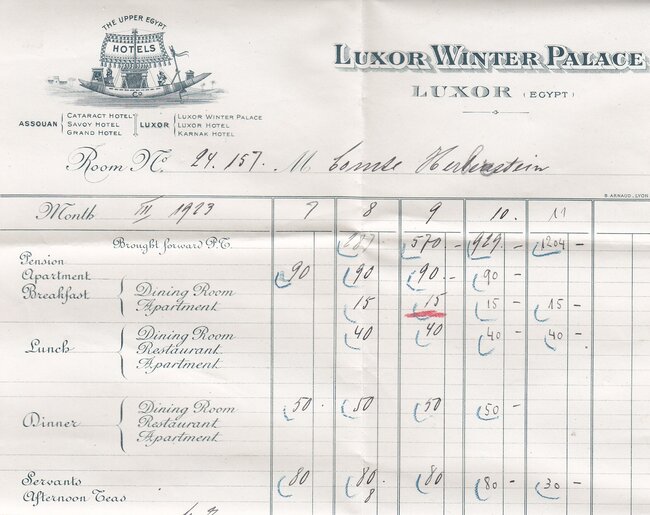 THE UPPER EGYPT
HOTELS
Co
ASSOUAN { CATARACT HOTEL SAVOY HOTEL GRAND HOTEL LUXOR { LUXOR WINTER PALACE LUXOR HOTEL KARNAK HOTEL
LUXOR WINTER PALACE
LUXOR (EGYPT)
Room No 24.157. M Comte Herberstein
B. ARNAUD. LYON
Month III 1923 7 8 9 10. 11
Brought forward P.T. 570 - 929 - 1204 -
Pension
Apartment 90 90 90 - 90 -
Breakfast { Dining Room
Apartment 15 15 15 - 15 -
Lunch { Dining Room 40 40 40 - 40 -
Restaurant
Apartment
Dinner { Dining Room 50 50 50 50 -
Restaurant
Apartment
Servants 80 80 80 80 - 30 -
Afternoon Teas 8